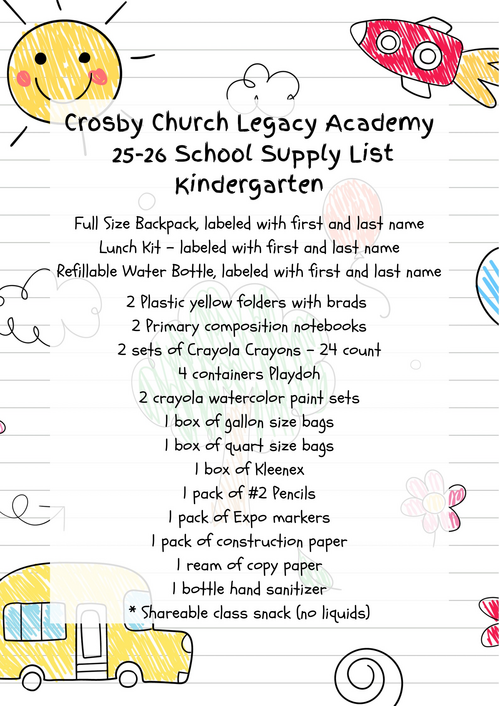 Crosby Church Legacy Academy
25-26 School Supply List
Kindergarten
Full Size Backpack, labeled with first and last name
Lunch Kit - labeled with first and last name
Refillable Water Bottle, labeled with first and last name
2 Plastic yellow folders with brads
2 Primary composition notebooks
2 sets of Crayola Crayons - 24 count
4 containers Playdoh
2 crayola watercolor paint sets
1 box of gallon size bags
1 box of quart size bags
1 box of Kleenex
1 pack of #2 Pencils
1 pack of Expo markers
1 pack of construction paper
1 ream of copy paper
1 bottle hand sanitizer
* Shareable class snack (no liquids)